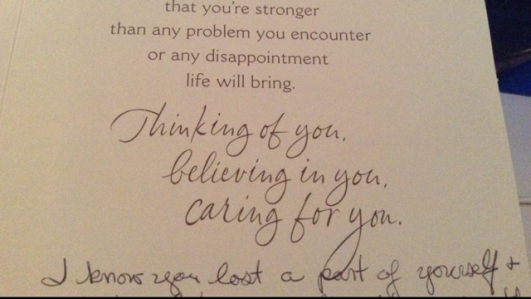 that you're stronger
than any problem you encounter
or any disappointment
life will bring.
Thinking of you,
believing in you,
caring for you.
I know you lost a part of yourself +